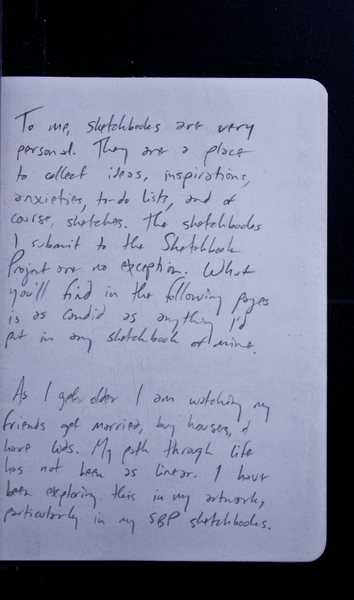 To me, sketchbooks are very
personal. They are a place
to collect ideas, inspirations,
anxieties, to-do lists, and of
course, sketches. The sketchbooks
I submit to the Sketchbook
Project are no exception. What
you'll find in the following pages
is as candid as anything I'd
put in any sketchbook of mine.
As I get older I am watching my
friends get married, buy houses, &
have kids. My path through life
has not been as linear. I have
been exploring this in my artwork,
particularly in my SBP sketchbooks.